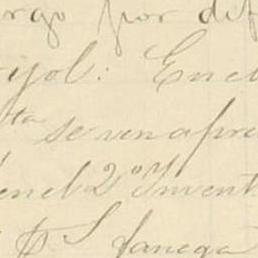 rgo por dif
yol: En el
ta se ven apre
en el 2º Invent
fanega